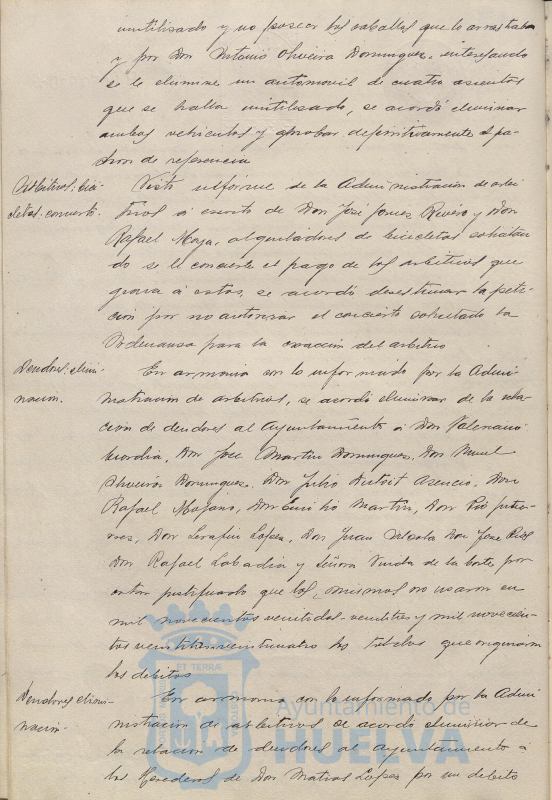 inutilizado y no poseer los caballos que lo arrastraban
y por Don Antonio Oliveira Dominguez, interesando
se le elimine un automovil de cuatro asientos
que se halla inutilizado, se acordó eliminar
ambos vehiculos y aprobar definitivamente el pa-
dron de referencia
Arbitrios: bici-
cletas: concierto.
Visto informe de la Administracion de arbi-
trios á escrito de Don José Gomez Rivero y Don
Rafael Moya, alquiladores de bicicletas solicitan-
do se le concierte el pago de los arbitrios que
grava á estas, se acordó desestimar la peti-
cion por no autorizar el concierto solicitado la
Ordenanza para la exacción del arbitrio
Deudores: elimi-
nacion.
En armonia con lo informado por la Admi-
nistracion de arbitrios, se acordó eliminar de la rela-
cion de deudores al Ayuntamiento á Don Valeriano
Don José Martin Dominguez, Don Manuel
Oliveira Dominguez, Don Julio Dutoit Asencio, Don
Rafael Don Emilio Martin, Don Pio
Don Serafin Lopez, Don Juan Don José Rios
Don Rafael Labadia y Señora Viuda de la Corte, por
estar justificado que los mismos no usaron en
mil novecientos veintidos-veintitres y mil novecien-
tos veintitres-veinticuatro los que originaron
los debitos
Deudores elimi-
nacion.
En armonia con lo informado por la Admi-
nistracion de arbitrios se acordó eliminar de
la relacion de deudores al Ayuntamiento á
los Herederos de Don Matias Lopez por un debito
ET TERRÆ
Ayuntamiento de
HUELVA